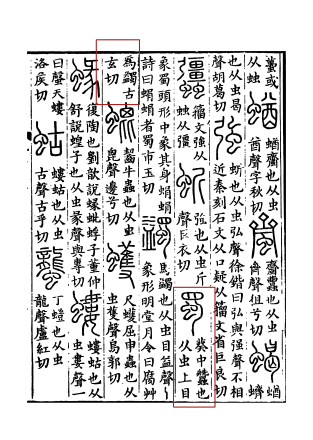 蠆或
从䖵
蝤
蝤齏也从虫
酋聲字秋切
齏蠹也从虫
齊聲徂兮切
蝎
蝤蠐
也从虫曷
聲胡葛切
強
蚚也从虫弘聲徐鍇曰弘與强聲不相
近秦刻石文从口疑从籒文省巨良切
籒文強从
䖵从彊
蚚
強也从虫斤
聲巨衣切
蜀
葵中蠶也
从虫上目
象蜀頭形中象其身蜎蜎
詩曰蜎蜎者蜀市玉切
蠲
馬蠲也从虫目益聲了
象形明堂月令曰腐艸
爲蠲古
玄切
螕
齧牛蟲也从虫
毘聲邊兮切
蠖
尺蠖屈申蟲也从
虫蒦聲烏郭切
蝝
復陶也劉歆說蝝蚍蜉子董仲
舒說蝗子也从虫彖聲與專切
螻
螻蛄也从
虫婁聲一
曰螜天螻
洛矦切
蛄
螻蛄也从虫
古聲古乎切
蠪
丁螘也从虫
龍聲盧紅切